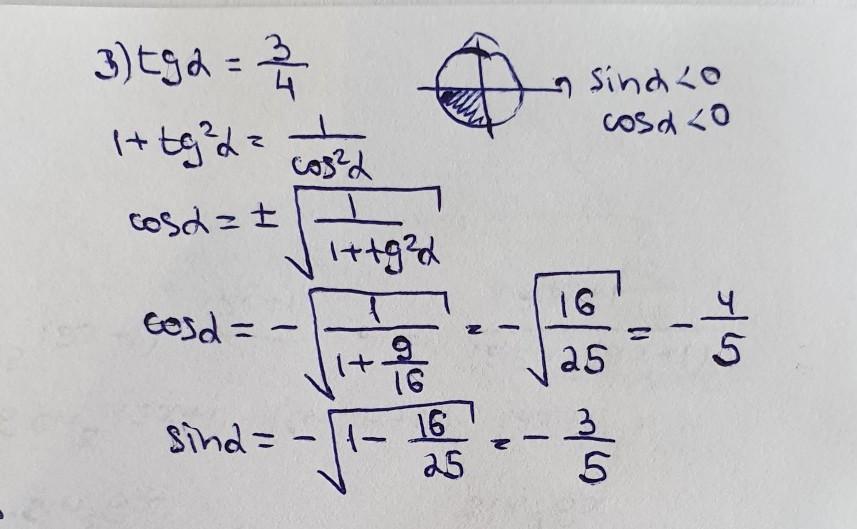 3) tgα = 3/4
sinα < 0
cosα < 0
1 + tg²α = 1/cos²α
cosα = ± √(1/(1 + tg²α))
cosα = - √(1/(1 + 9/16)) = - √(16/25) = - 4/5
sinα = - √(1 - 16/25) = - 3/5